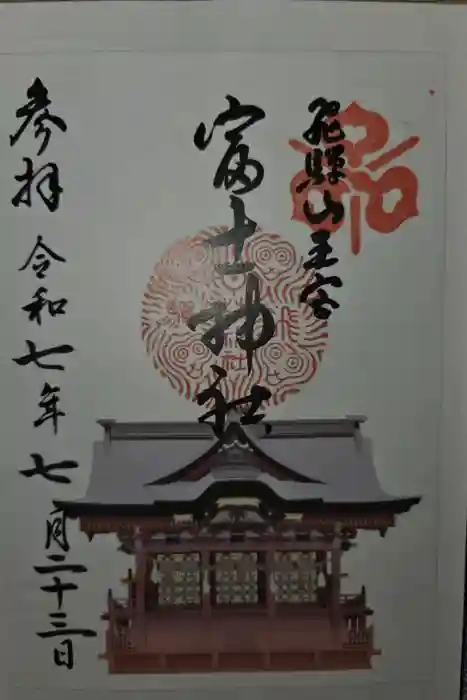 飛騨山王宮
富士神社
参拝
令和七年七月二十三日